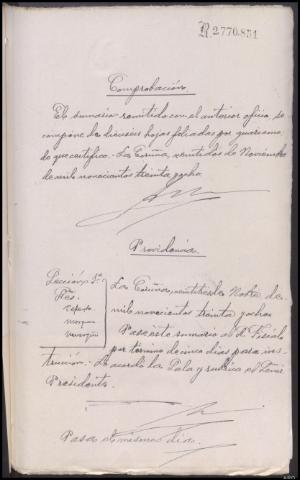 R.2770.851
Comprobación
El sumario remitido con el anterior oficio, se
compone de dieciseis hojas foliadas por
de que certifico.- La Coruña, veintidos de Noviembre
de mil novecientos treinta y ocho.
Providencia.
Sección 3ª
La Coruña, veintitres de Novbre de
mil novecientos treinta y ocho.
Pase este sumario al Sr. Fiscal
por término de cinco dias para ins-
trucción.- Lo acordó la Sala y rubrica el Señor
Presidente.
Pasa el mismo dia.